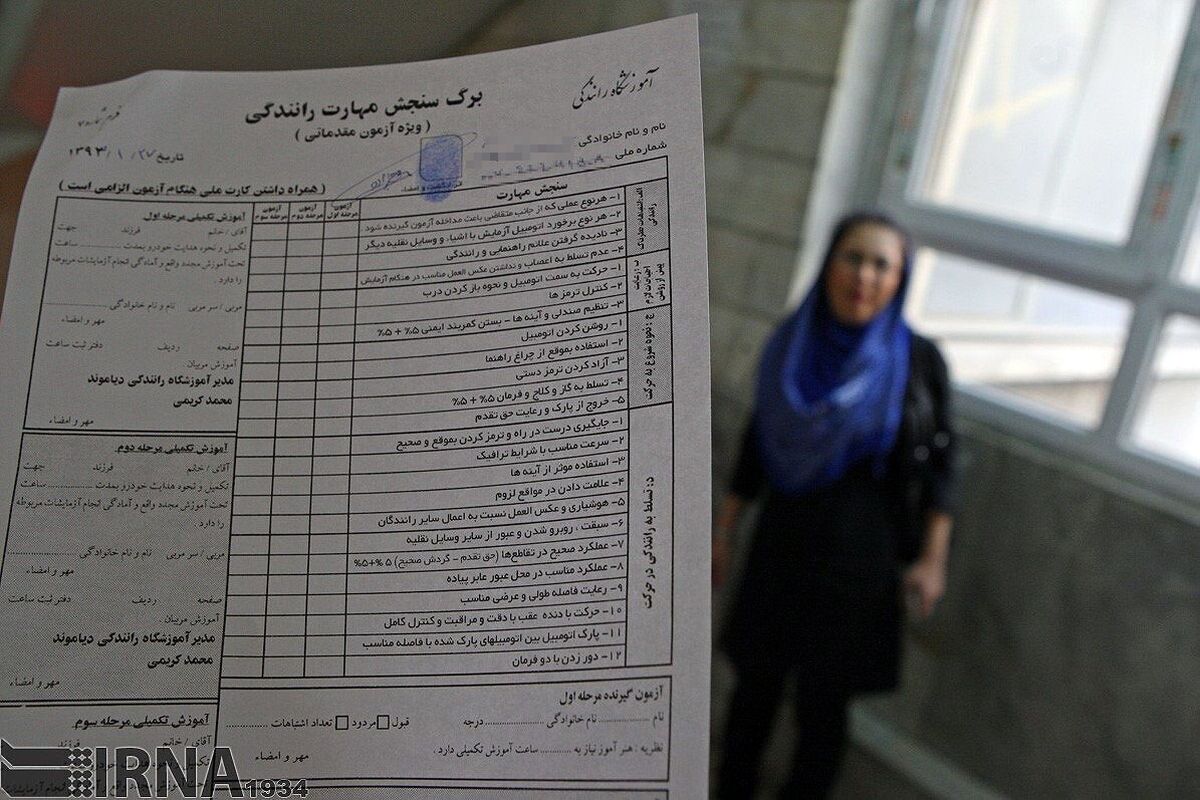 آموزشگاه رانندگی
برگ سنجش مهارت رانندگی
( ویژه آزمون مقدماتی )
تاریخ ۱۳۹۳/۱/۲۷
نام و نام خانوادگی
شماره ملی
( همراه داشتن کارت ملی هنگام آزمون الزامی است )
سنجش مهارت
آزمون مرحله اول
آزمون مرحله دوم
آزمون مرحله سوم
۱- هرنوع عملی که از جانب متقاضی باعث مداخله آزمون گیرنده شود
۲- هر نوع برخورد اتومبیل آزمایش با اشیاء و وسایل نقلیه دیگر
۳- نادیده گرفتن علائم راهنمایی و رانندگی
۴- عدم تسلط به اعصاب و نداشتن عکس العمل مناسب در هنگام آزمایش
۱- حرکت به سمت اتومبیل و نحوه باز کردن درب
۲- کنترل ترمز ها
۳- تنظیم صندلی و آینه ها - بستن کمربند ایمنی ۵% + ۵%
ج : نحوه شروع به حرکت
۱- روشن کردن اتومبیل
۲- استفاده بموقع از چراغ راهنما
۳- آزاد کردن ترمز دستی
۴- تسلط به گاز و کلاج و فرمان ۵% + ۵%
۵- خروج از پارک و رعایت حق تقدم
د: تسلط به رانندگی در حرکت
۱- جایگیری درست در راه و ترمز کردن بموقع و صحیح
۲- سرعت مناسب با شرایط ترافیک
۳- استفاده موثر از آینه ها
۴- علامت دادن در مواقع لزوم
۵- هوشیاری و عکس العمل نسبت به اعمال سایر رانندگان
۶- سبقت ، روبرو شدن و عبور از سایر وسایل نقلیه
۷- عملکرد صحیح در تقاطع‌ها (حق تقدم - گردش صحیح) ۵ %+۵%
۸- عملکرد مناسب در محل عبور عابر پیاده
۹- رعایت فاصله طولی و عرضی مناسب
۱۰- حرکت با دنده عقب با دقت و مراقبت و کنترل کامل
۱۱- پارک اتومبیل بین اتومبیلهای پارک شده با فاصله مناسب
۱۲- دور زدن با دو فرمان
آموزش تکمیلی مرحله اول
آقای / خانم فرزند جهت
تکمیل و نحوه هدایت خودرو بمدت ............ ساعت
تحت آموزش مجدد واقع و آمادگی انجام آزمایشات مربوطه
را دارد .
مربی / سر مربی نام و نام خانوادگی ....................
مهر و امضاء
صفحه ردیف دفتر ثبت ساعت
آموزش مربیان .
مدیر آموزشگاه رانندگی دیاموند
محمد کریمی
مهر و امضاء
آموزش تکمیلی مرحله دوم
آقای / خانم فرزند جهت
تکمیل و نحوه هدایت خودرو بمدت ............ ساعت
تحت آموزش مجدد واقع و آمادگی انجام آزمایشات مربوطه
را دارد .
مربی / سر مربی نام و نام خانوادگی ....................
مهر و امضاء
صفحه ردیف دفتر ثبت ساعت
آموزش مربیان .
مدیر آموزشگاه رانندگی دیاموند
محمد کریمی
مهر و امضاء
آموزش تکمیلی مرحله سوم
آقای / خانم فرزند
آزمون گیرنده مرحله اول
نام .................. نام خانوادگی .................. درجه
قبول □ مردود □ تعداد اشتباهات ............
نظریه : هنر آموز نیاز به ............ ساعت آموزش تکمیلی دارد .
مهر و امضاء
IRNA 1934